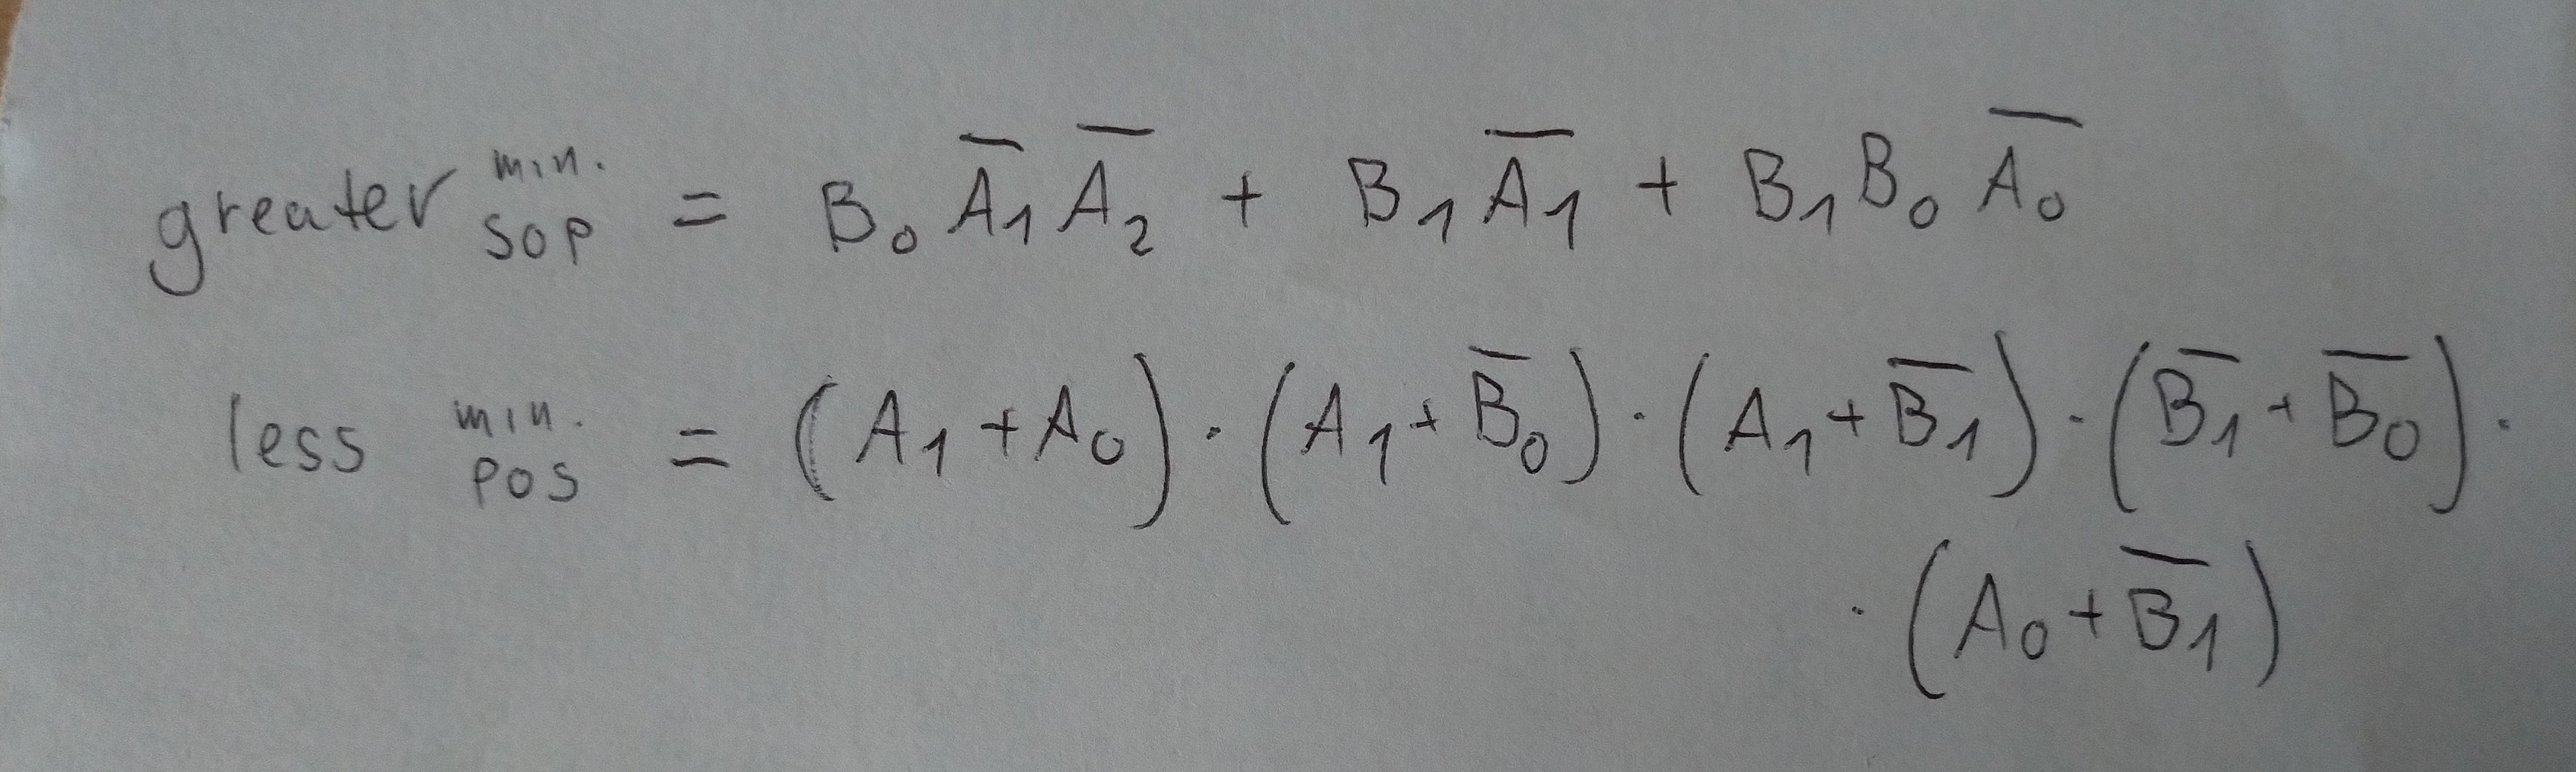 greater min. SOP = B₀ A̅₁ A̅₂ + B₁ A̅₁ + B₁ B₀ A̅₀
less min. POS = (A₁ + A₀) · (A₁ + B̅₀) · (A₁ + B̅₁) · (B̅₁ + B̅₀) ·
· (A₀ + B̅₁)